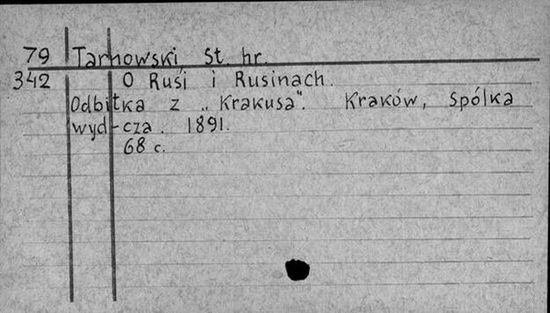 79 Tarnowski, St. hr.
342 O Rusi i Rusinach.
Odbitka z „Krakusa". Kraków, Spólka
wyd-cza. 1891.
68 c.